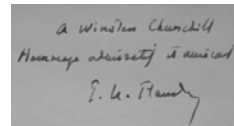 A Winston Churchill
Hommage admiratif et amical